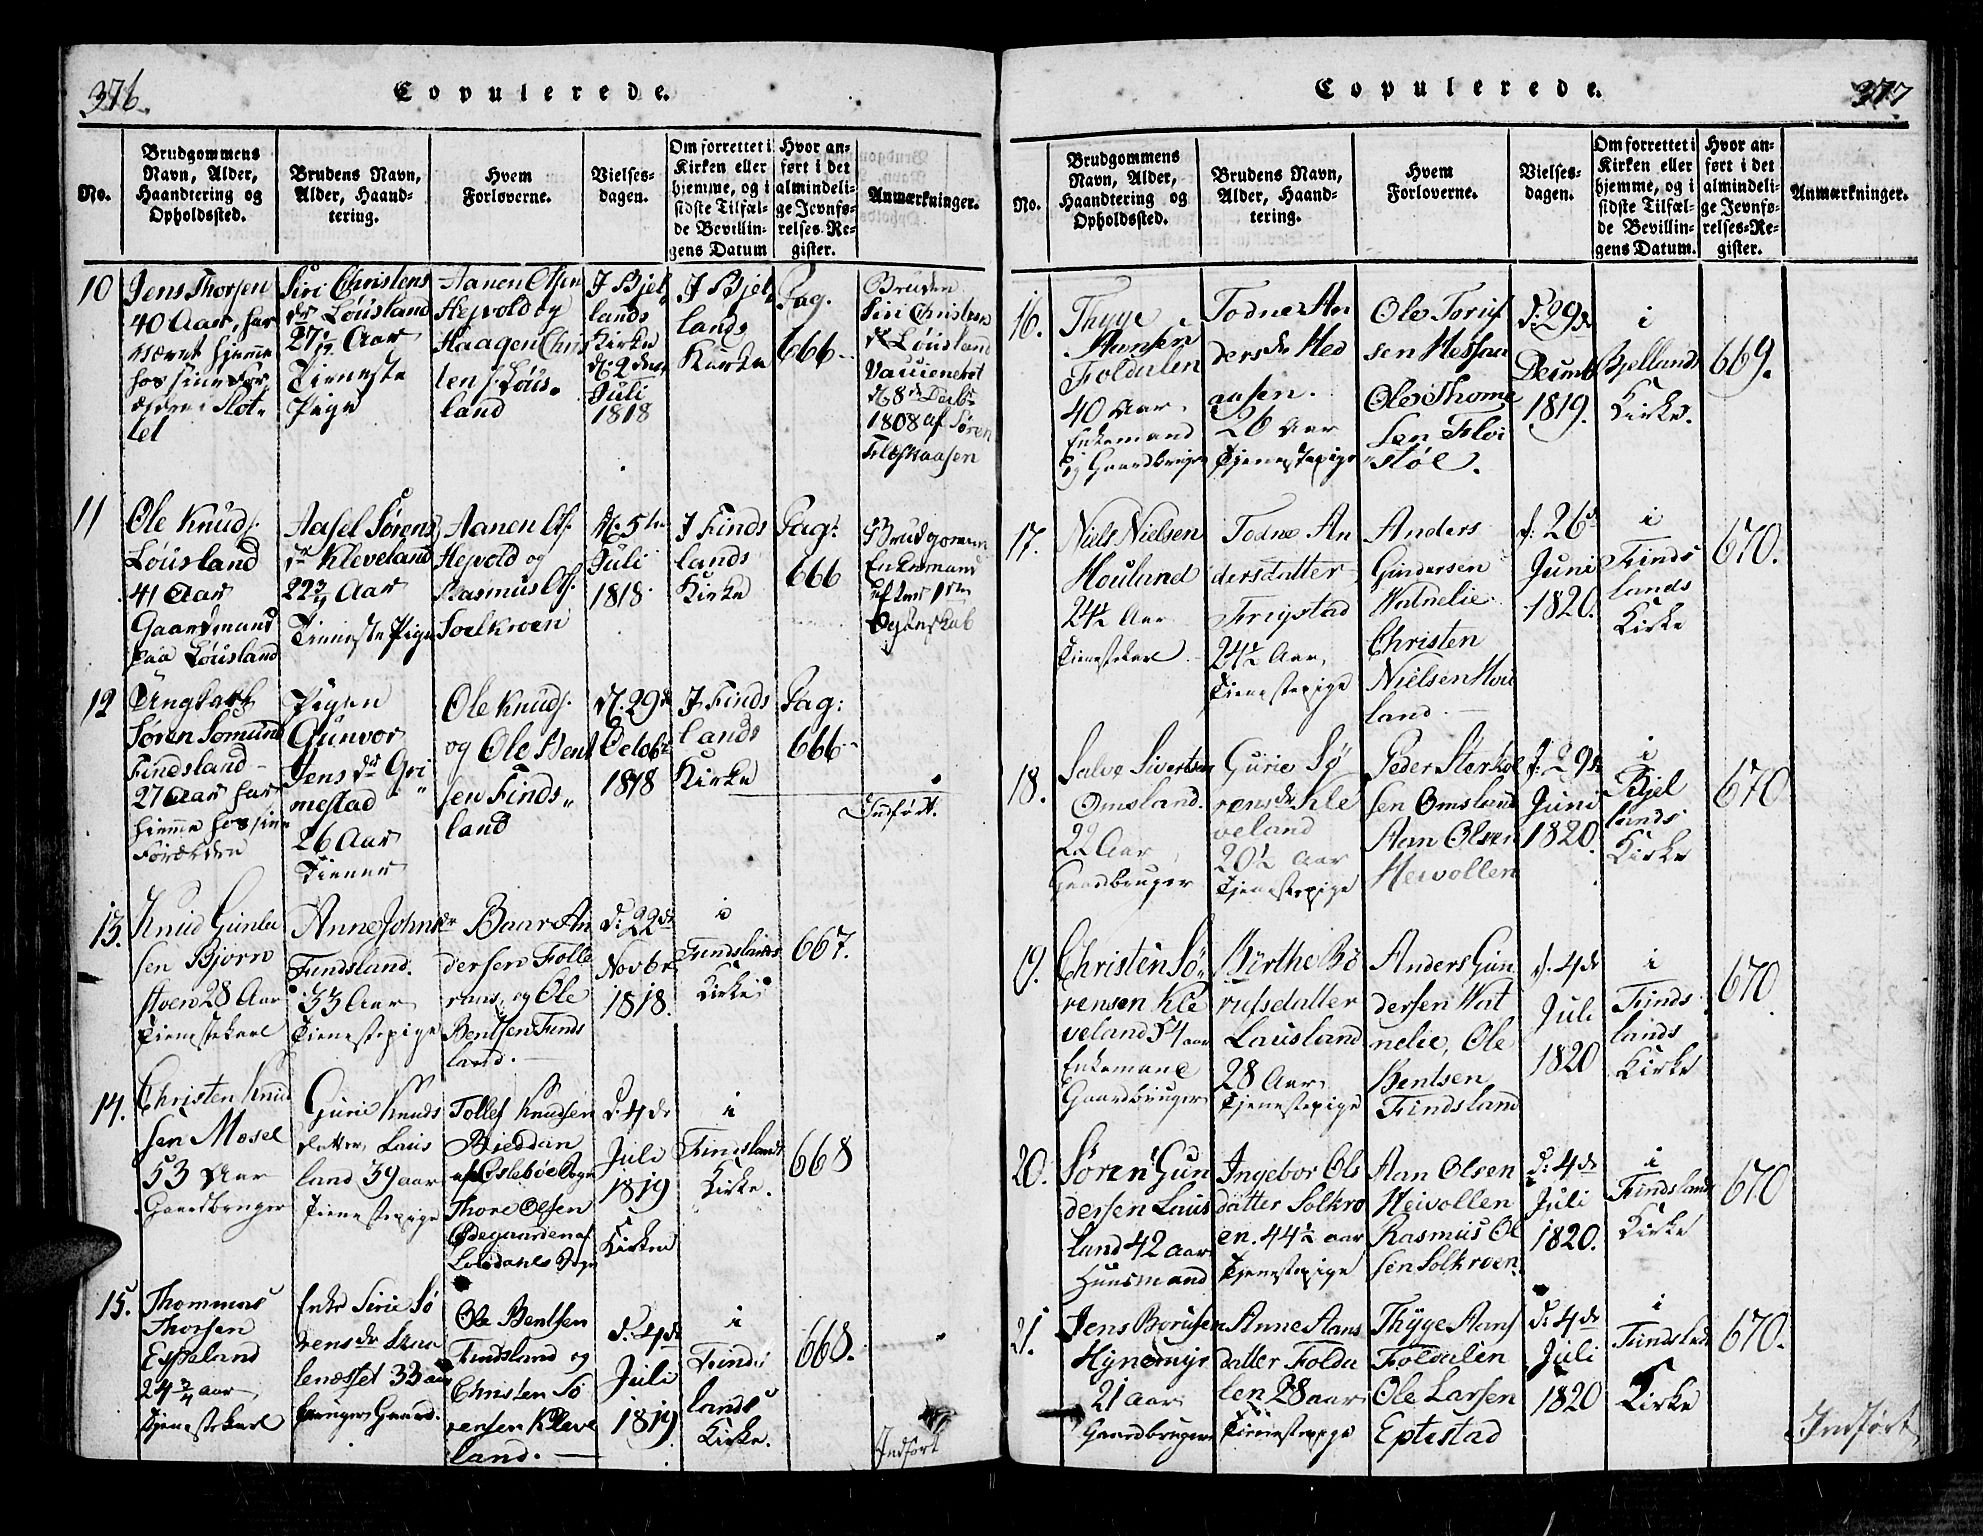 376.
Copulerede.
No.
Brudgommens
Navn, Alder,
Haandtering og
Opholdssted.
Brudens Navn,
Alder, Haand-
tering.
Hvem
Forloverne.
Vielses-
dagen.
Om forrettet i
Kirken eller
hjemme, og i
sidste Tilfæl-
de Bevillin-
gens Datum
Hvor an-
ført i det
almindeli-
ge Jevnfø-
relses-Re-
gister.
Anmærkninger.
10
Jens Thorsen
40 Aar, har
været hjemme
hos sine For
ældre i Slot-
tet
Siri Christens
dr Löusland
Aar
Tieneste
Pige
Aanen Olsen
Hejvold og
Haagen Chris
ten s. Löus-
land
I Bjel
lands
Kirke
d. 2den
Juli
1818
I Bjel
lands
Kirke
Pag.
666
Bruden
Siri Christens
dr Löusland
Vaccineret
d 8de Decbr
1808 af Søren
Fleskaasen
11
Ole Knuds.
Löusland
41 Aar
Gaardmand
paa Löusland
Aasel Sørens
dr Kleveland
22 3/4 Aar
Tieneste Pige
Aanen Ols.
Hejvold og
Rasmus Ols.
Soelkroen
d. 5te
Juli
1818
I Finds
lands
Kirke
Pag:
666
Brudgommen
Enkemand
efter 1ste
Egteskab
12
Ungkarl
Søren Somund
Findsland
27 Aar har
hiemme hos sine
Forældre
Pigen
Gunvor
Jens dr Gri
mestad
26 Aar
Tiener
Ole Knuds.
og Ole Bent
sen Finds
land
d. 29de
Octobr
1818
I Finds
lands
Kirke
Pag:
666
Indført.
13.
Knud Gunle
sen Bjorn
stven 28 Aar
Tienestekarl
Anne Johns dr
Findsland.
33 Aar
Tienestepige
Baar An
dersen Folle
raas, og Ole
Bentsen Finds
land.
d: 22de
Novbr
1818.
i
Findslands
Kirke
667.
14.
Christen Knud
sen Mosel
53 Aar
Gaardbruger
Gurie Knuds
datter Laus
land 39 aar
Tienestepige
Tollef Knudsen
Bieddan
af Oslebøe Sogn
Thore Olsen
Ødegaarden af
Sogn
d. 4de
Juli
1819
Kirken
i
Findslands
Kirke.
668
15.
Thommas
Thorsen
Espeland
24 3/4 aar
Tjenestekarl
Enke Sirie Sø
rensdr
lenesset 33 aar
bruger Gaard.
Ole Bentsen
Findsland og
Christen Sø
rensen Kleve
land.
d. 4de
Juli
1819
i
Finds
lands
Kirke.
668.
Indført
377
Copulerede.
No.
Brudgommens
Navn, Alder,
Haandtering og
Opholdssted.
Brudens Navn,
Alder, Haand-
tering.
Hvem
Forloverne.
Vielses-
dagen.
Om forrettet i
Kirken eller
hjemme, og i
sidste Tilfæl-
de Bevillin-
gens Datum.
Hvor an-
ført i det
almindeli-
ge Jevnfø-
relses-Re-
gister.
Anmærkninger.
16.
Thyge
Hansen
Foldalen
40 Aar
Enkemand
og Gaardbruger
Todne An
ders dr Hed
aasen.
26 Aar
Tjenestepige
Ole Torif
sen Hessaa
Ole Thome
sen Floi
støl.
d: 29de
Decmb
1819.
i
Bjellands
Kirke.
669.
17.
Niels Nielsen
Houland
24 1/2 Aar
Tienestekarl
Todne An
dersdatter
Frigstad
24 1/2 Aar
Tienestepige
Anders
Gundersen
Vatnelie
Christen
Nielsen Hou
land
d: 26de
Juni
1820.
i
Finds
lands
Kirke
670.
18.
Salve Sivertsen
Omsland.
22 Aar
Gaardbruger
Gurie Sø
rens dr Kle
veland
20 1/2 Aar
Tjenestepige
Peder Sterkol
sen Omsland
Aan Olsen
Heivollen
d: 29de
Juni
1820.
i
Bjel
lands
Kirke
670
19.
Christen Sø
rensen Kle
veland 54 aar
Enkemand
Gaardbruger
Birthe Bø
rufsdatter
Lausland
28 Aar
Tjenestepige
Anders Gun
dersen Vat
nelie, Ole
Bentsen
Findsland
d. 4de
Juli
1820
i
Finds
lands
Kirke
670
20.
Søren Gun
dersen Laus
land 42 aar
Huusmand
Ingebor Ols
datter Solkro
en. 44 1/2 aar
Tjenestepige
Aan Olsen
Heivollen
Rasmus Ol
sen Solkroen.
d: 4de
Juli
1820.
i
Findslands
Kirke
670
21.
Jens Borufsen
Hynemyr
21 aar
Gaardbruger
Anne Aans
datter Folda
len 28 aar
Tienestepige
Thyge Aans
Foldalen
Ole Larsen
Eptestad
d: 4de
Juli
1820
i
Findsland
Kirke
670.
Indført